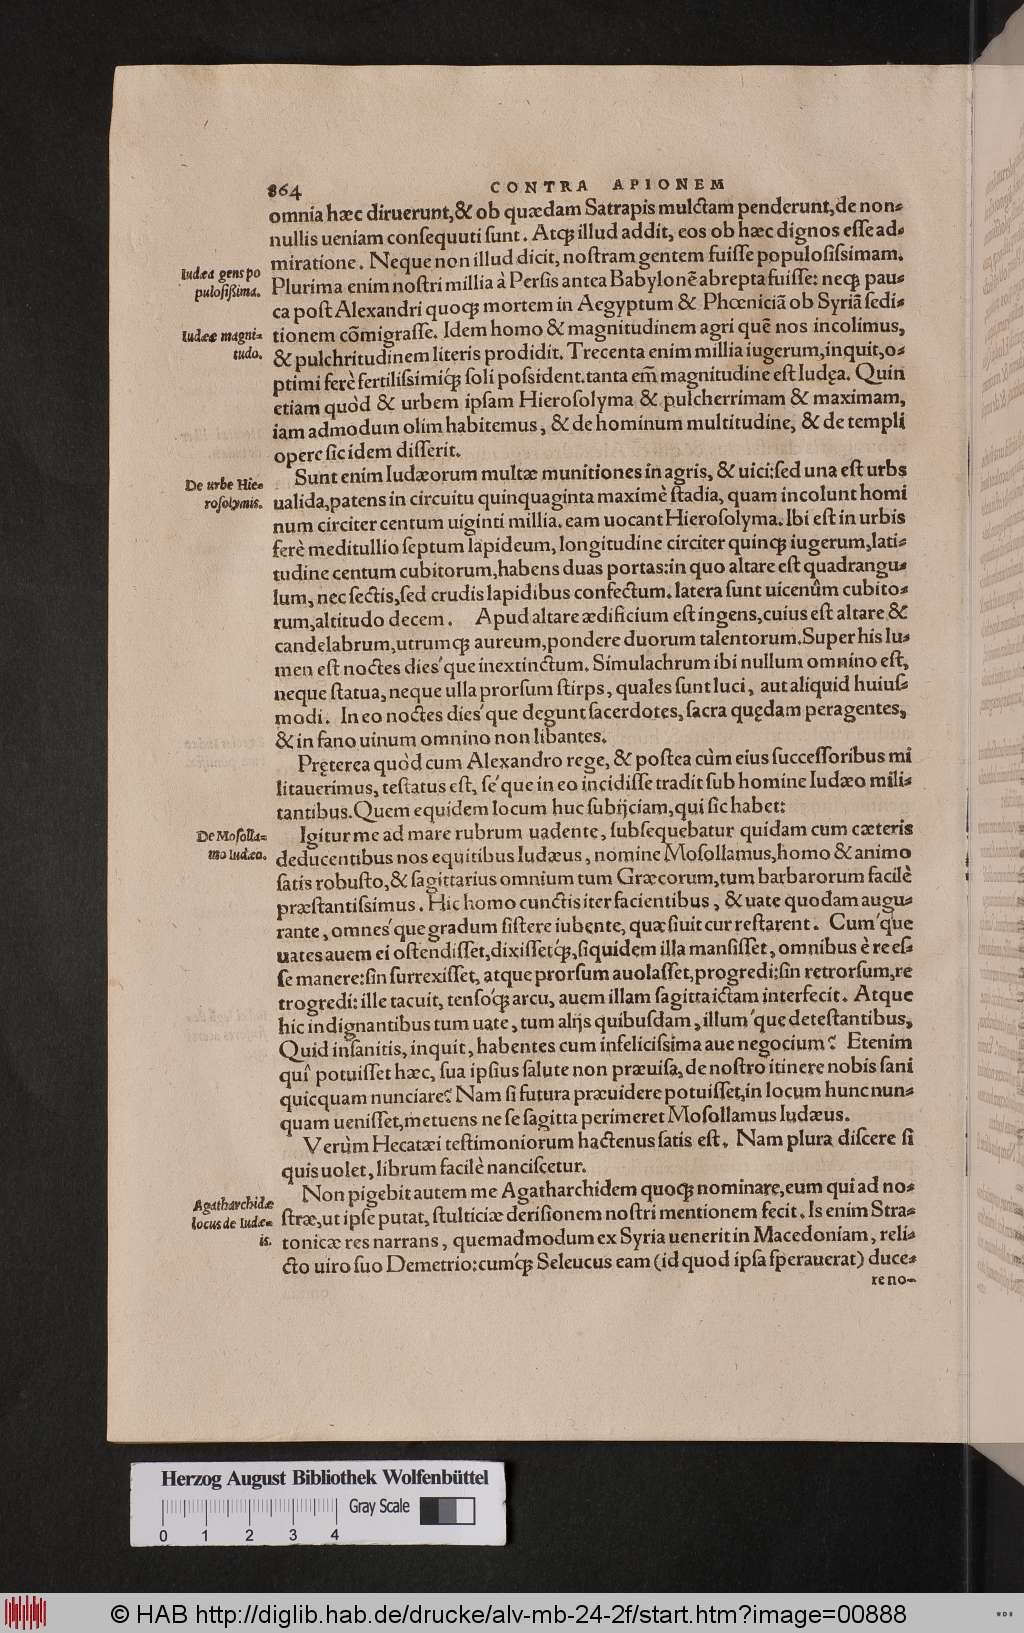 864 CONTRA APIONEM
omnia hæc diruerunt,& ob quædam Satrapis mulctam penderunt,de non-
nullis ueniam consequuti sunt. Atqꝫ illud addit, eos ob hæc dignos esse ad-
miratione. Neque non illud dicit, nostram gentem fuisse populosissimam.
Iudæa gens po
pulosissima.
Plurima enim nostri millia à Persis antea Babylonē abrepta fuisse: neqꝫ pau-
ca post Alexandri quoqꝫ mortem in Aegyptum & Phœniciā ob Syriā sedi-
Iudææ magni-
tudo.
tionem cōmigrasse. Idem homo & magnitudinem agri quē nos incolimus,
& pulchritudinem literis prodidit. Trecenta enim millia iugerum,inquit,o-
ptimi ferè fertilissimiqꝫ soli possident.tanta em̄ magnitudine est Iudęa. Quin
etiam quòd & urbem ipsam Hierosolyma & pulcherrimam & maximam,
iam admodum olim habitemus, & de hominum multitudine, & de templi
opere sic idem disserit.
Sunt enim Iudæorum multæ munitiones in agris, & uici:sed una est urbs
De urbe Hie-
rosolymis.
ualida,patens in circuitu quinquaginta maximè stadia, quam incolunt homi
num circiter centum uiginti millia. eam uocant Hierosolyma. Ibi est in urbis
ferè meditullio septum lapideum, longitudine circiter quinqꝫ iugerum,lati-
tudine centum cubitorum,habens duas portas:in quo altare est quadrangu-
lum, nec sectis,sed crudis lapidibus confectum. latera sunt uicenûm cubito-
rum,altitudo decem. Apud altare ædificium est ingens,cuius est altare &
candelabrum,utrumqꝫ aureum,pondere duorum talentorum.Super his lu-
men est noctes dies'que inextinctum. Simulachrum ibi nullum omnino est,
neque statua, neque ulla prorsum stirps, quales sunt luci, aut aliquid huius-
modi. In eo noctes dies'que degunt sacerdotes, sacra quędam peragentes,
& in fano uinum omnino non libantes.
Pręterea quòd cum Alexandro rege, & postea cùm eius successoribus mi
litauerimus, testatus est, se'que in eo incidisse tradit sub homine Iudæo mili-
tantibus.Quem equidem locum huc subijciam,qui sic habet:
De Mosolla-
mo Iudæo.
Igitur me ad mare rubrum uadente, subsequebatur quidam cum cæteris
deducentibus nos equitibus Iudæus, nomine Mosollamus,homo & animo
satis robusto,& sagittarius omnium tum Græcorum,tum barbarorum facilè
præstantissimus. Hic homo cunctis iter facientibus, & uate quodam augu-
rante, omnes'que gradum sistere iubente, quæsiuit cur restarent. Cum'que
uates auem ei ostendisset,dixissetqꝫ,siquidem illa mansisset, omnibus è re es-
se manere:sin surrexisset, atque prorsum auolasset,progredi:sin retrorsum,re
trogredi: ille tacuit, tensoqꝫ arcu, auem illam sagitta ictam interfecit. Atque
hic indignantibus tum uate, tum alijs quibusdam, illum'que detestantibus,
Quid insanitis, inquit, habentes cum infelicissima aue negocium? Etenim
quî potuisset hæc, sua ipsius salute non præuisa, de nostro itinere nobis sani
quicquam nunciare? Nam si futura præuidere potuisset,in locum hunc nun-
quam uenisset,metuens ne se sagitta perimeret Mosollamus Iudæus.
Verùm Hecatæi testimoniorum hactenus satis est. Nam plura discere si
quis uolet, librum facilè nanciscetur.
Agatharchidæ
locus de Iudæ-
is.
Non pigebit autem me Agatharchidem quoqꝫ nominare,eum qui ad no-
stræ,ut ipse putat, stulticiæ derisionem nostri mentionem fecit. Is enim Stra-
tonicæ res narrans, quemadmodum ex Syria uenerit in Macedoniam, reli-
cto uiro suo Demetrio:cumqꝫ Seleucus eam (id quod ipsa sperauerat) duce-
re no-
Herzog August Bibliothek Wolfenbüttel
Gray Scale
0 1 2 3 4
© HAB http://diglib.hab.de/drucke/alv-mb-24-2f/start.htm?image=00888